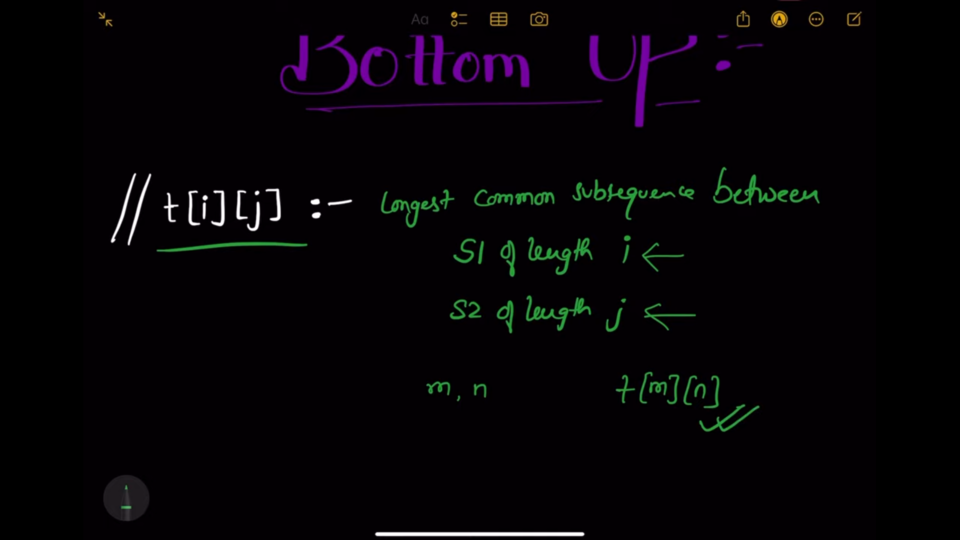 Aa
Bottom Up :-
// t[i][j] :- Longest Common subsequence between
S1 of length i ←
S2 of length j ←
m, n t[m][n]